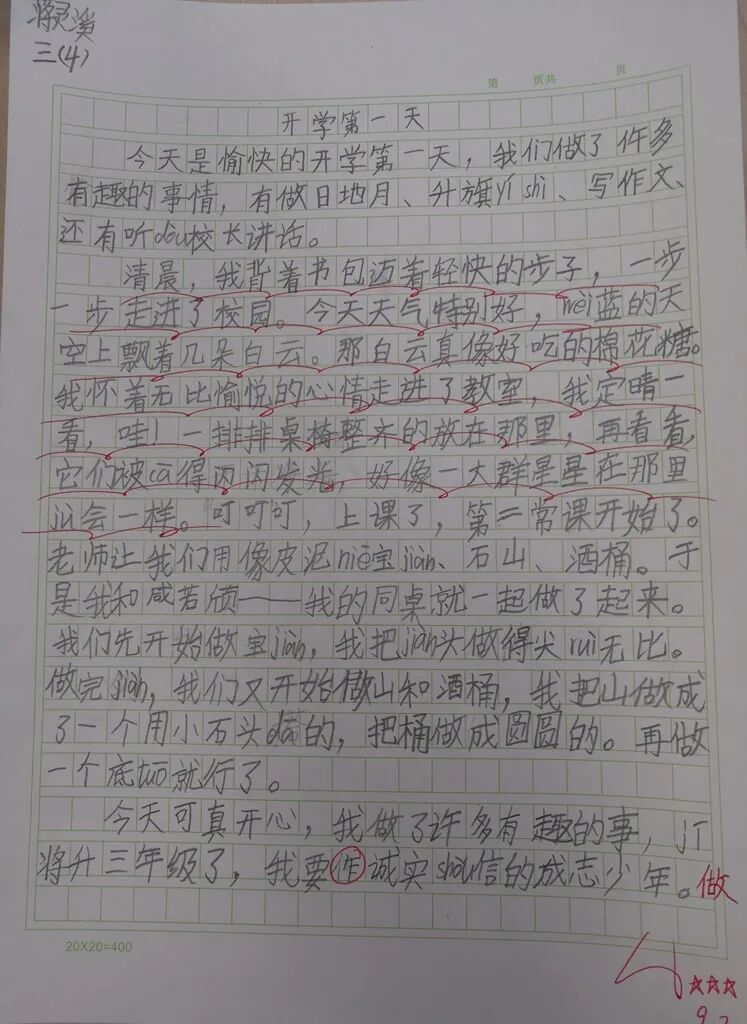 蒋灵溪
三(4)
第 页共 页
开学第一天
今天是愉快的开学第一天，我们做了许多
有趣的事情，有做日地月、升旗yí shì、写作文、
还有听dàu校长讲话。
清晨，我背着书包迈着轻快的步子，一步
一步走进了校园。今天天气特别好，wèi蓝的天
空上飘着几朵白云。那白云真像好吃的棉花糖。
我怀着无比愉悦的心情走进了教室，我定晴一
看，哇！一排排桌椅整齐的放在那里，再看看，
它们被cā得闪闪发光，好像一大群星星在那里
jù会一样。叮叮叮，上课了，第二常课开始了。
老师让我们用像皮泥niē宝jiàn、石山、酒桶。于
是我和咸若颀——我的同桌就一起做了起来。
我们先开始做宝jiàn，我把jiàn头做得尖ruì无比。
做完jiàn，我们又开始做山和酒桶，我把山做成
了一个用小石头dā的，把桶做成圆圆的。再做
一个底tuō就行了。
今天可真开心，我做了许多有趣的事，jí
将升三年级了，我要作诚实shǒu信的成志少年。做
20X20=400